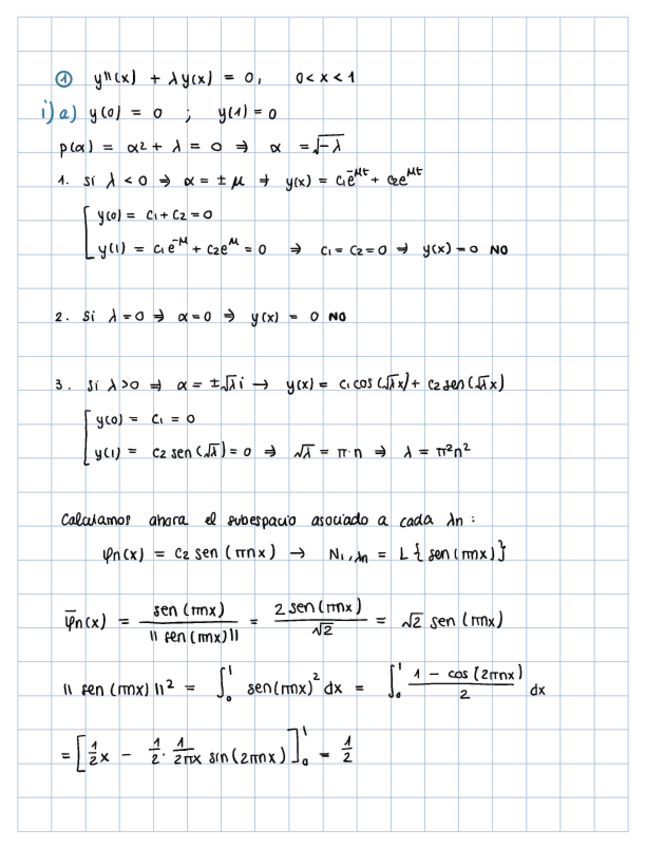 ① y''(x) + λy(x) = 0, 0 < x < 1
i) a) y(0) = 0 ; y(1) = 0
p(α) = α2 + λ = 0 ⇒ α = √-λ
1. si λ < 0 ⇒ α = ± μ → y(x) = c1e^-μt + c2e^μt
y(0) = c1 + c2 = 0
y(1) = c1e^-μ + c2e^μ = 0 ⇒ c1 = c2 = 0 ⇒ y(x) = 0 NO
2. si λ = 0 ⇒ α = 0 ⇒ y(x) = 0 NO
3. si λ > 0 ⇒ α = ±√λ i → y(x) = c1 cos(√λ x) + c2 sen(√λ x)
y(0) = c1 = 0
y(1) = c2 sen(√λ) = 0 ⇒ √λ = π·n ⇒ λ = π²n²
Calculamos ahora el subespacio asociado a cada λn :
φn(x) = c2 sen (πnx) → N1,λn = L{sen(πnx)}
φ̅n(x) = sen (πnx) / || sen (πnx) || = 2 sen (πnx) / √2 = √2 sen (πnx)
|| sen (πnx) ||² = ∫₀¹ sen(πnx)² dx = ∫₀¹ (1 - cos (2πnx)) / 2 dx
= [1/2 x - 1/2 · 1/2πx sin (2πnx)]₀¹ = 1/2